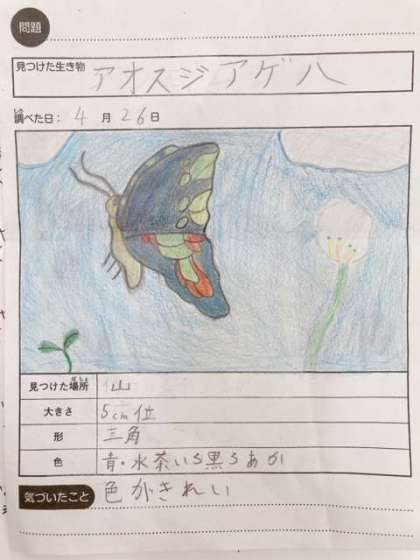 問題
見つけた生き物 アオスジアゲハ
調べた日: 4月26日
見つけた場所 山
大きさ 5cm位
形 三角
色 青・水茶いろ黒ろあか
気づいたこと 色がきれい